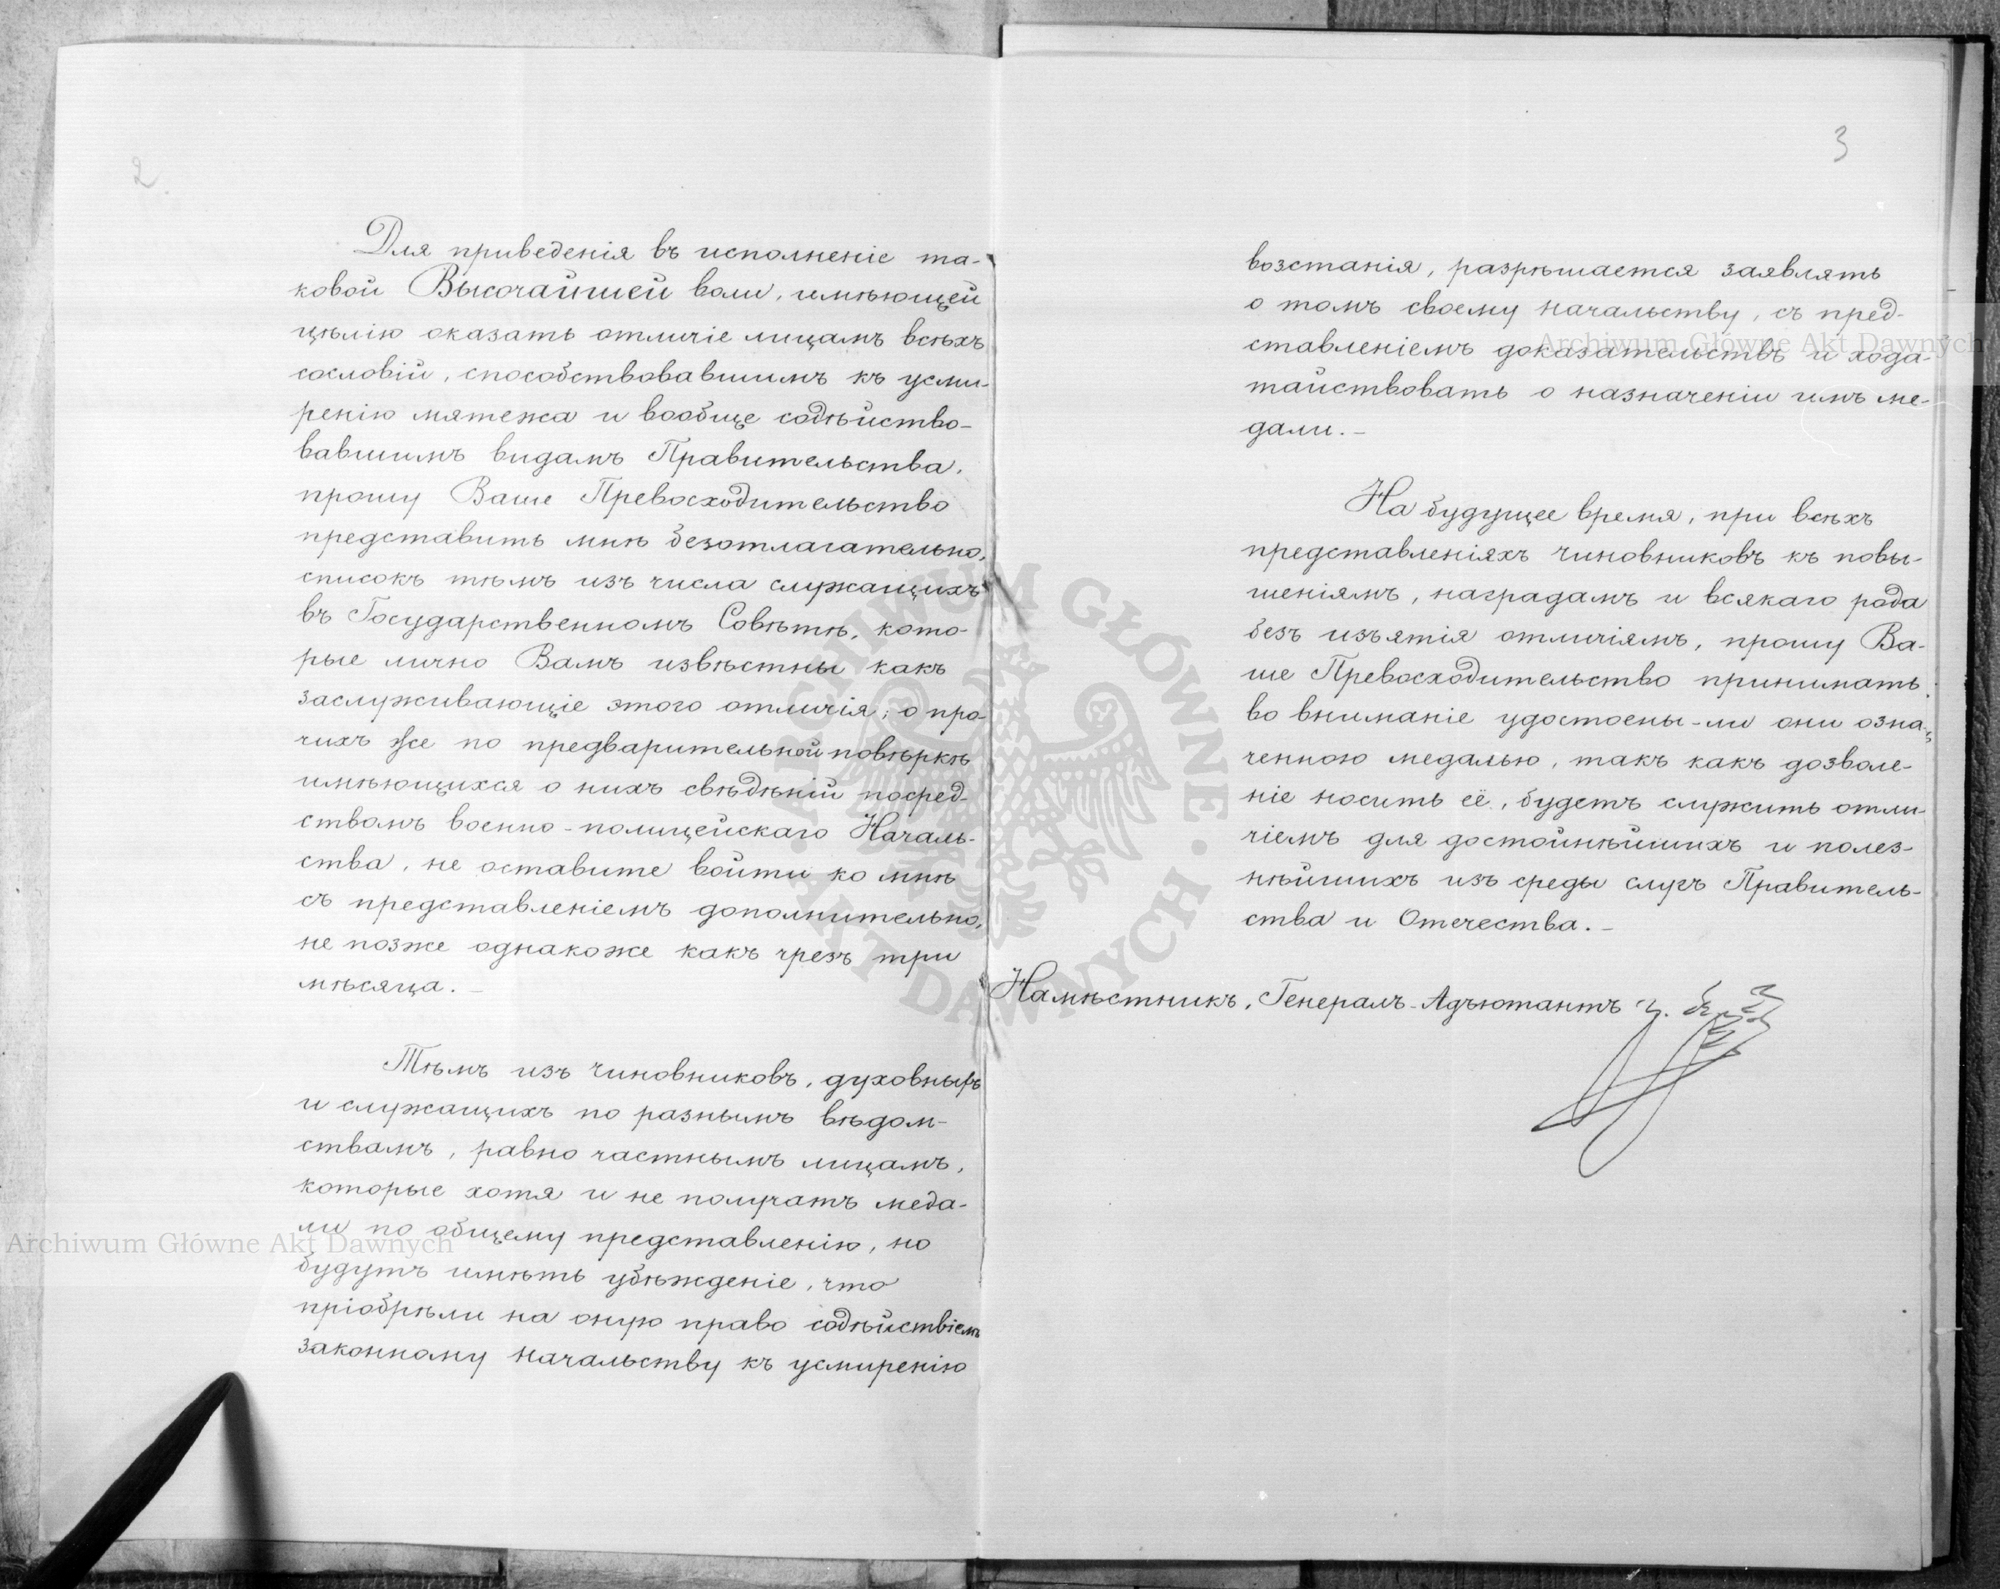 2.
Для приведенія въ исполненіе та-
ковой Высочайшей воли, имѣющей
цѣлію оказать отличіе лицамъ всѣхъ
сословій, способствовавшимъ къ усми-
ренію мятежа и вообще содѣйство-
вавшимъ видамъ Правительства,
прошу Ваше Превосходительство
представить мнѣ безотлагательно,
списокъ тѣмъ изъ числа служащихъ
въ Государственномъ Совѣтѣ, кото-
рые лично Вамъ извѣстны какъ
заслуживающіе этого отличія; о про-
чихъ же по предварительной повѣркѣ
имѣющихся о нихъ свѣдѣній посред-
ствомъ военно-полицейскаго Началь-
ства, не оставите войти ко мнѣ
съ представленіемъ дополнительно,
не позже однакоже какъ чрезъ три
мѣсяца. –
Тѣмъ изъ чиновниковъ, духовныхъ
и служащихъ по разнымъ вѣдом-
ствамъ, равно частнымъ лицамъ,
которые хотя и не получатъ меда-
ли по общему представленію, но
будутъ имѣть убѣжденіе, что
пріобрѣли на оную право содѣйствіемъ
законному начальству къ усмиренію
3
возстанія, разрѣшается заявлять
о томъ своему начальству, съ пред-
ставленіемъ доказательствъ и хода-
тайствовать о назначеніи имъ ме-
дали. –
На будущее время, при всѣхъ
представленіяхъ чиновниковъ къ повы-
шеніямъ, наградамъ и всякаго рода
безъ изъятія отличіямъ, прошу Ва-
ше Превосходительство принимать
во вниманіе удостоены-ли они озна-
ченною медалью, такъ какъ дозволе-
ніе носить её, будетъ служить отли-
чіемъ для достойнѣйшихъ и полез-
нѣйшихъ изъ среды слугъ Правитель-
ства и Отечества. –
Намѣстникъ, Генералъ-Адъютантъ
Archiwum Główne Akt Dawnych
Archiwum Główne Akt Dawnych
ARCHIWUM GŁÓWNE · AKT DAWNYCH ·